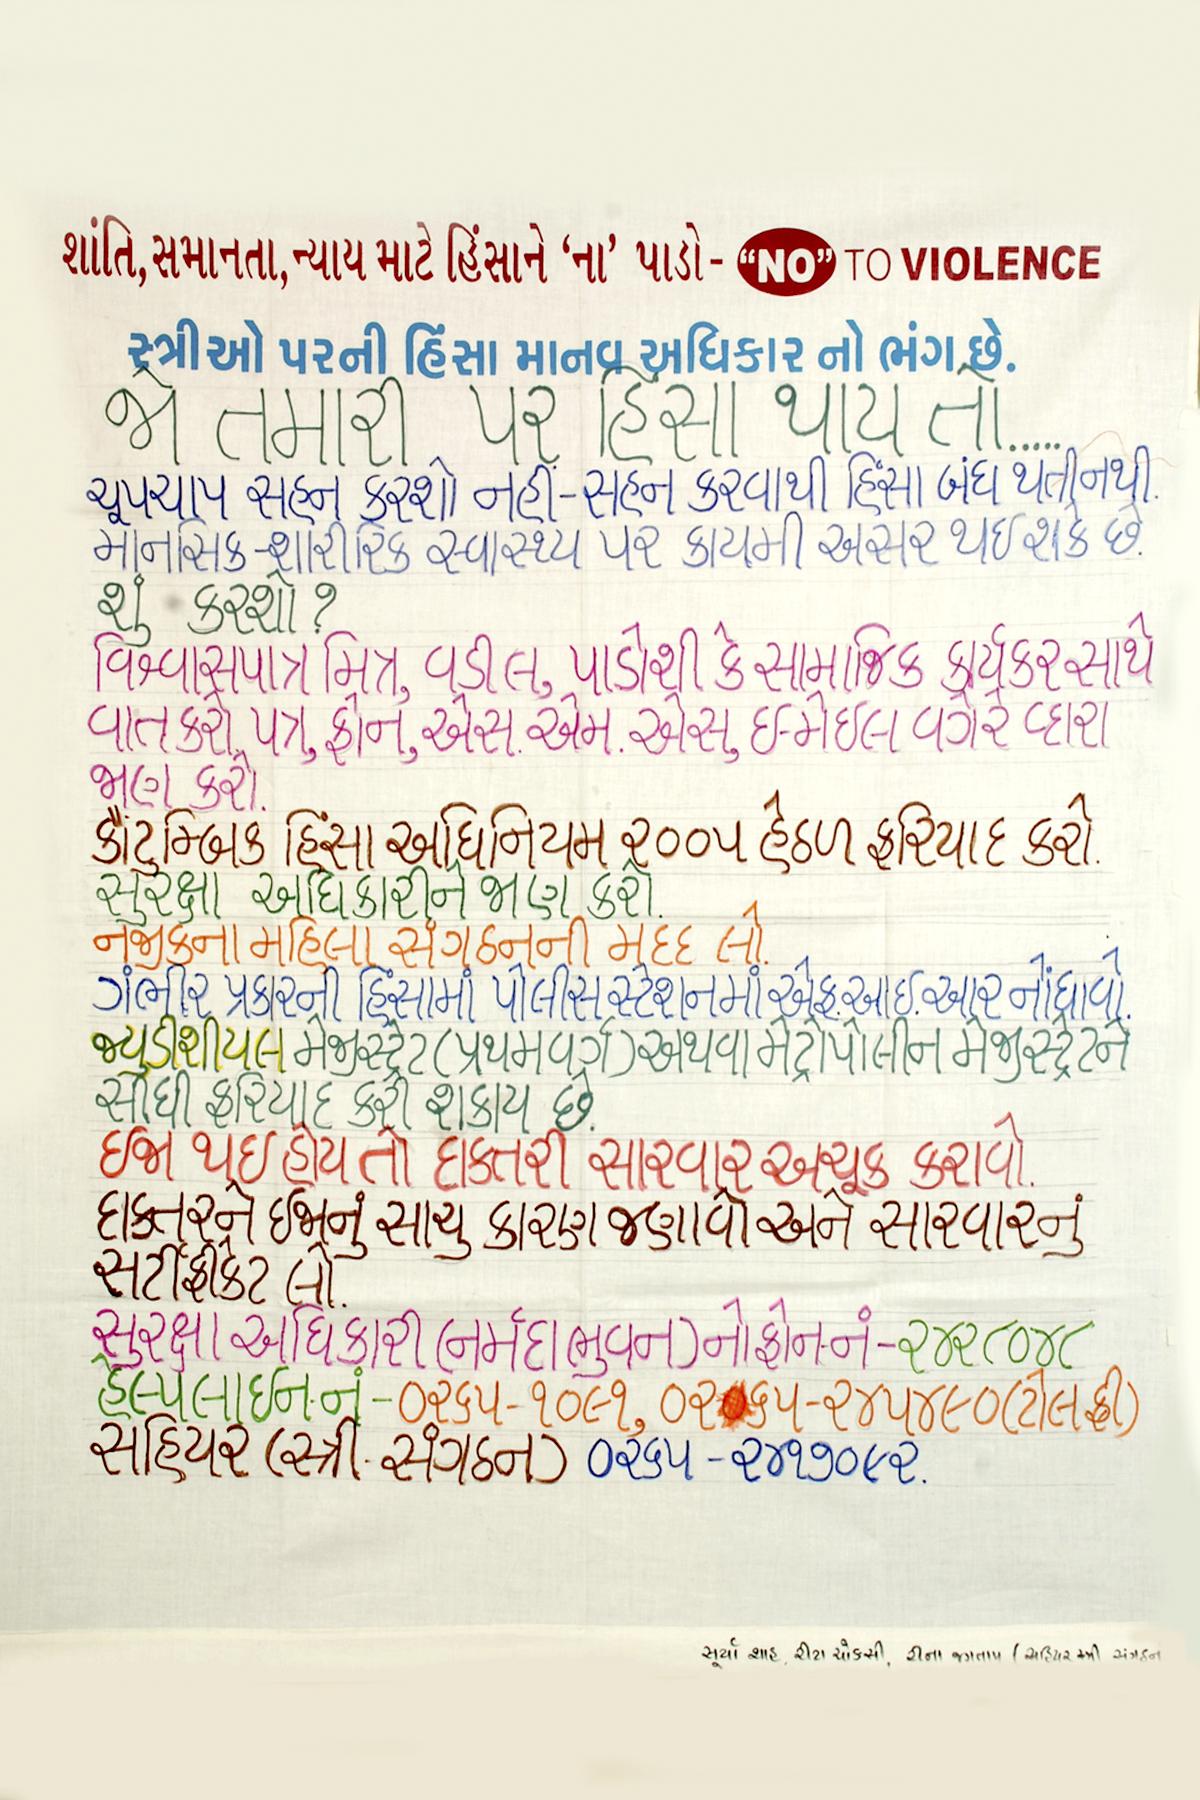 શાંતિ, સમાનતા, ન્યાય માટે હિંસાને ‘ના’ પાડો - “NO” TO VIOLENCE
સ્ત્રીઓ પરની હિંસા માનવ અધિકાર નો ભંગ છે.
જો તમારી પર હિંસા થાય તો.....
ચૂપચાપ સહન કરશો નહીં - સહન કરવાથી હિંસા બંધ થતી નથી.
માનસિક - શારીરિક સ્વાસ્થ્ય પર કાયમી અસર થઈ શકે છે.
શું કરશો ?
વિશ્વાસપાત્ર મિત્ર, વડીલ, પાડોશી કે સામાજિક કાર્યકર સાથે
વાત કરો, પત્ર, ફોન, એસ. એમ. એસ, ઈ-મેઇલ વગેરે વ્દારા
જાણ કરો.
કૌટુમ્બિક હિંસા અધિનિયમ ૨૦૦૫ હેઠળ ફરિયાદ કરો.
સુરક્ષા અધિકારીને જાણ કરો.
નજીકના મહિલા સંગઠનની મદદ લો.
ગંભીર પ્રકારની હિંસામાં પોલીસ સ્ટેશનમાં એફ.આઇ.આર નોંધાવો.
જ્યુડીશીયલ મેજીસ્ટ્રેટ (પ્રથમ વર્ગ) અથવા મેટ્રોપોલીન મેજીસ્ટ્રેટને
સીધી ફરિયાદ કરી શકાય છે.
ઈજા થઇ હોય તો દાક્તરી સારવાર અચૂક કરાવો.
દાક્તરને ઈજાનું સાચુ કારણ જણાવો અને સારવારનું
સર્ટીફીકેટ લો.
સુરક્ષા અધિકારી (નર્મદા ભુવન) નો ફોન.નં - ૨૪૨૮૦૪૮
હેલ્પલાઇન.નં - ૦૨૬૫ - ૧૦૯૧, ૦૨૬૫ - ૨૪૫૪૯૦ (ટોલ ફ્રી)
સહિયર (સ્ત્રી. સંગઠન) ૦૨૬૫ - ૨૪૧૭૦૯૨.
સૂર્યા શાહ, રીટા ચોકસી, રીના જગતાપ (સહિયર સ્ત્રી સંગઠન